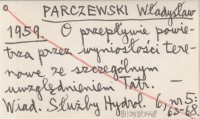 PARCZEWSKI Władysław
1959. O przepływie powie-
trza przez wyniosłości tere-
nowe ze szczególnym
uwzględnieniem Tatr. —
Wiad. Służby Hydrol. 6, nr 5:
63-68.